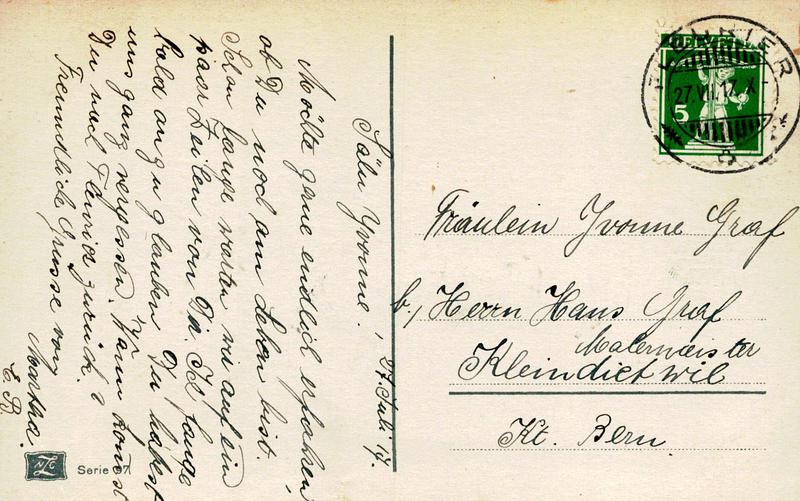 27. Juli 17.
Salu Yvonne.
Möchte gerne endlich erfahren,
ob Du noch am Leben bist.
Schon lange warten wir auf ein
paar Zeilen von Dir. Ich fange
bald an zu glauben Du habest
uns ganz vergessen. Wann kommst
Du nach Fleurier zurück?
Freundliche Grüsse von
Martha.
E. R.
Serie 97
HELVETIA
5
FLEURIER
27.VII.17.X-
Fräulein Yvonne Graf
b/ Herrn Hans Graf
Malermeister
Kleindietwil
Kt. Bern.